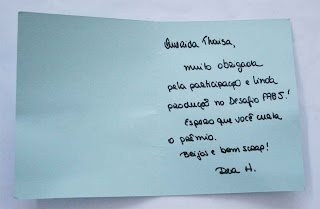 Querida Thaisa,
muito obrigada
pela participação e linda
produção no Desafio FABS!
Espero que você curta
o prêmio.
Beijos e bom scrap!
Dea H.